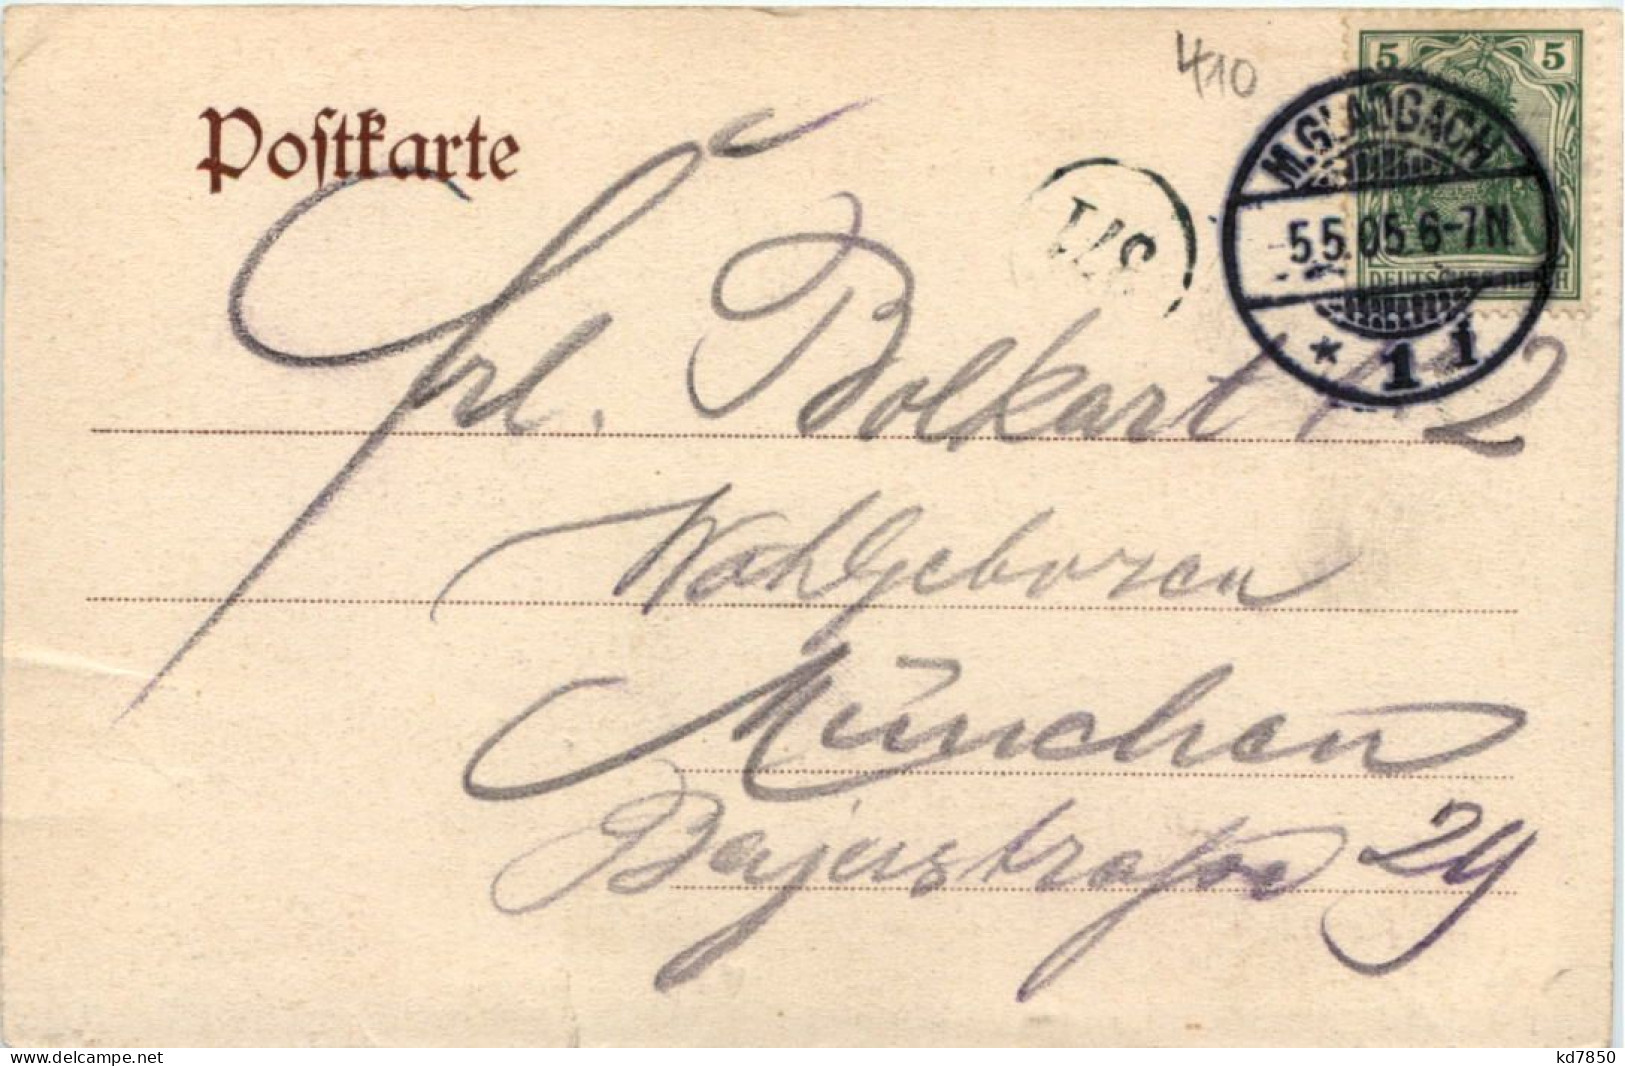 410
5 5
Postkarte
M. GLADBACH
5.5.05.6-7N
DEUTSCHES REICH
* 1 f
371
Frl. Bolkart 2
Wohlgeboren
München
Bayerstrasse 29
www.delcampe.net
kd7850